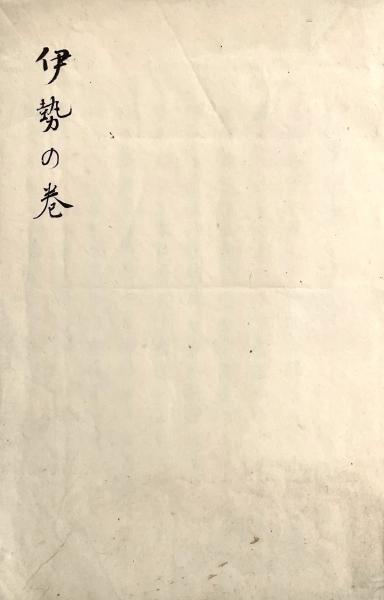 伊勢の巻